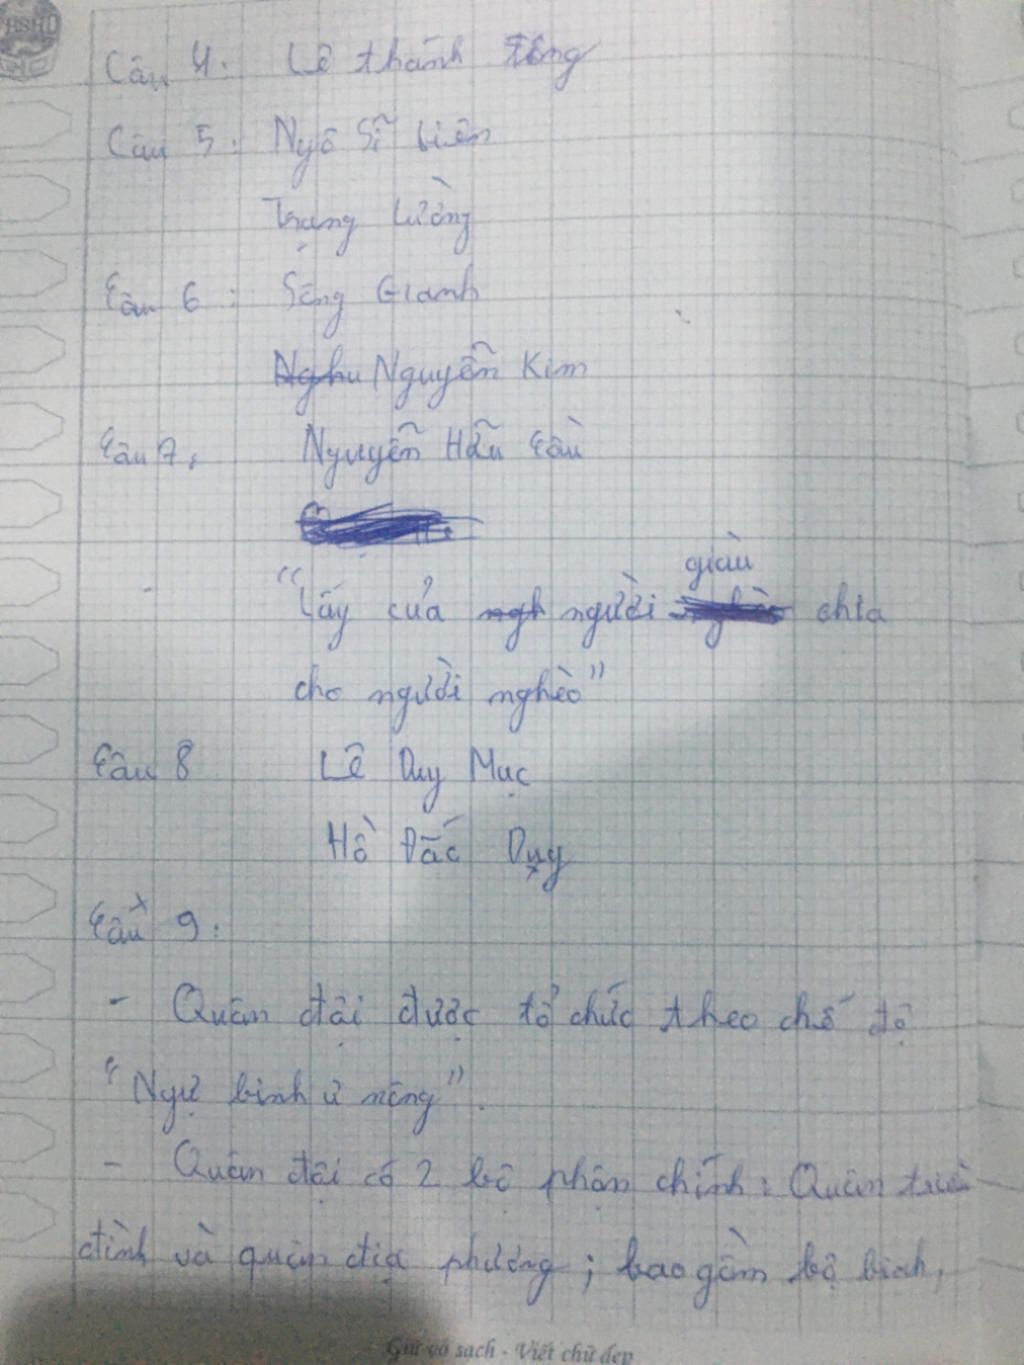 Câu 4: Lê thánh Tông
Câu 5: Ngô Sĩ Liên
Trạng Lường
Câu 6: Sông Gianh
Nguyễn Kim
Câu 7, Nguyễn Hữu Cầu
giàu
"Lấy của người chia
cho người nghèo"
Câu 8 Lê Duy Mục
Hồ Đắc Duy
Câu 9:
- Quân đội được tổ chức theo chế độ
"Ngụ binh ư nông".
- Quân đội có 2 bộ phận chính: Quân triều
đình và quân địa phương; bao gồm bộ binh,
Giữ vở sạch - Viết chữ đẹp